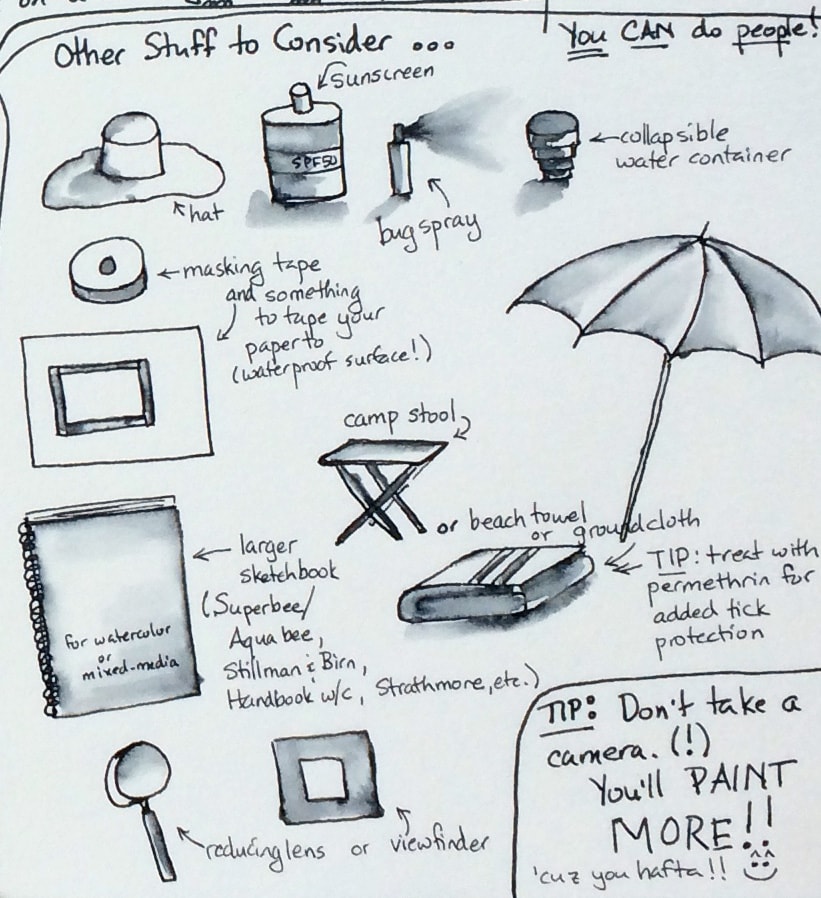 Other Stuff to Consider ...
You CAN do people!
sunscreen
SPF50
hat
bug spray
collapsible
water container
masking tape
and something
to tape your
paper to
(waterproof surface!)
camp stool
or beach towel
or groundcloth
TIP: treat with
permethrin for
added tick
protection
larger
sketchbook
(Superbee/
Aquabee,
Stillman & Birn,
Handbook w/c, Strathmore, etc.)
for watercolor
or
mixed-media
reducing lens or viewfinder
TIP: Don't take a
camera. (!)
You'll PAINT
MORE!!
'cuz you hafta!!